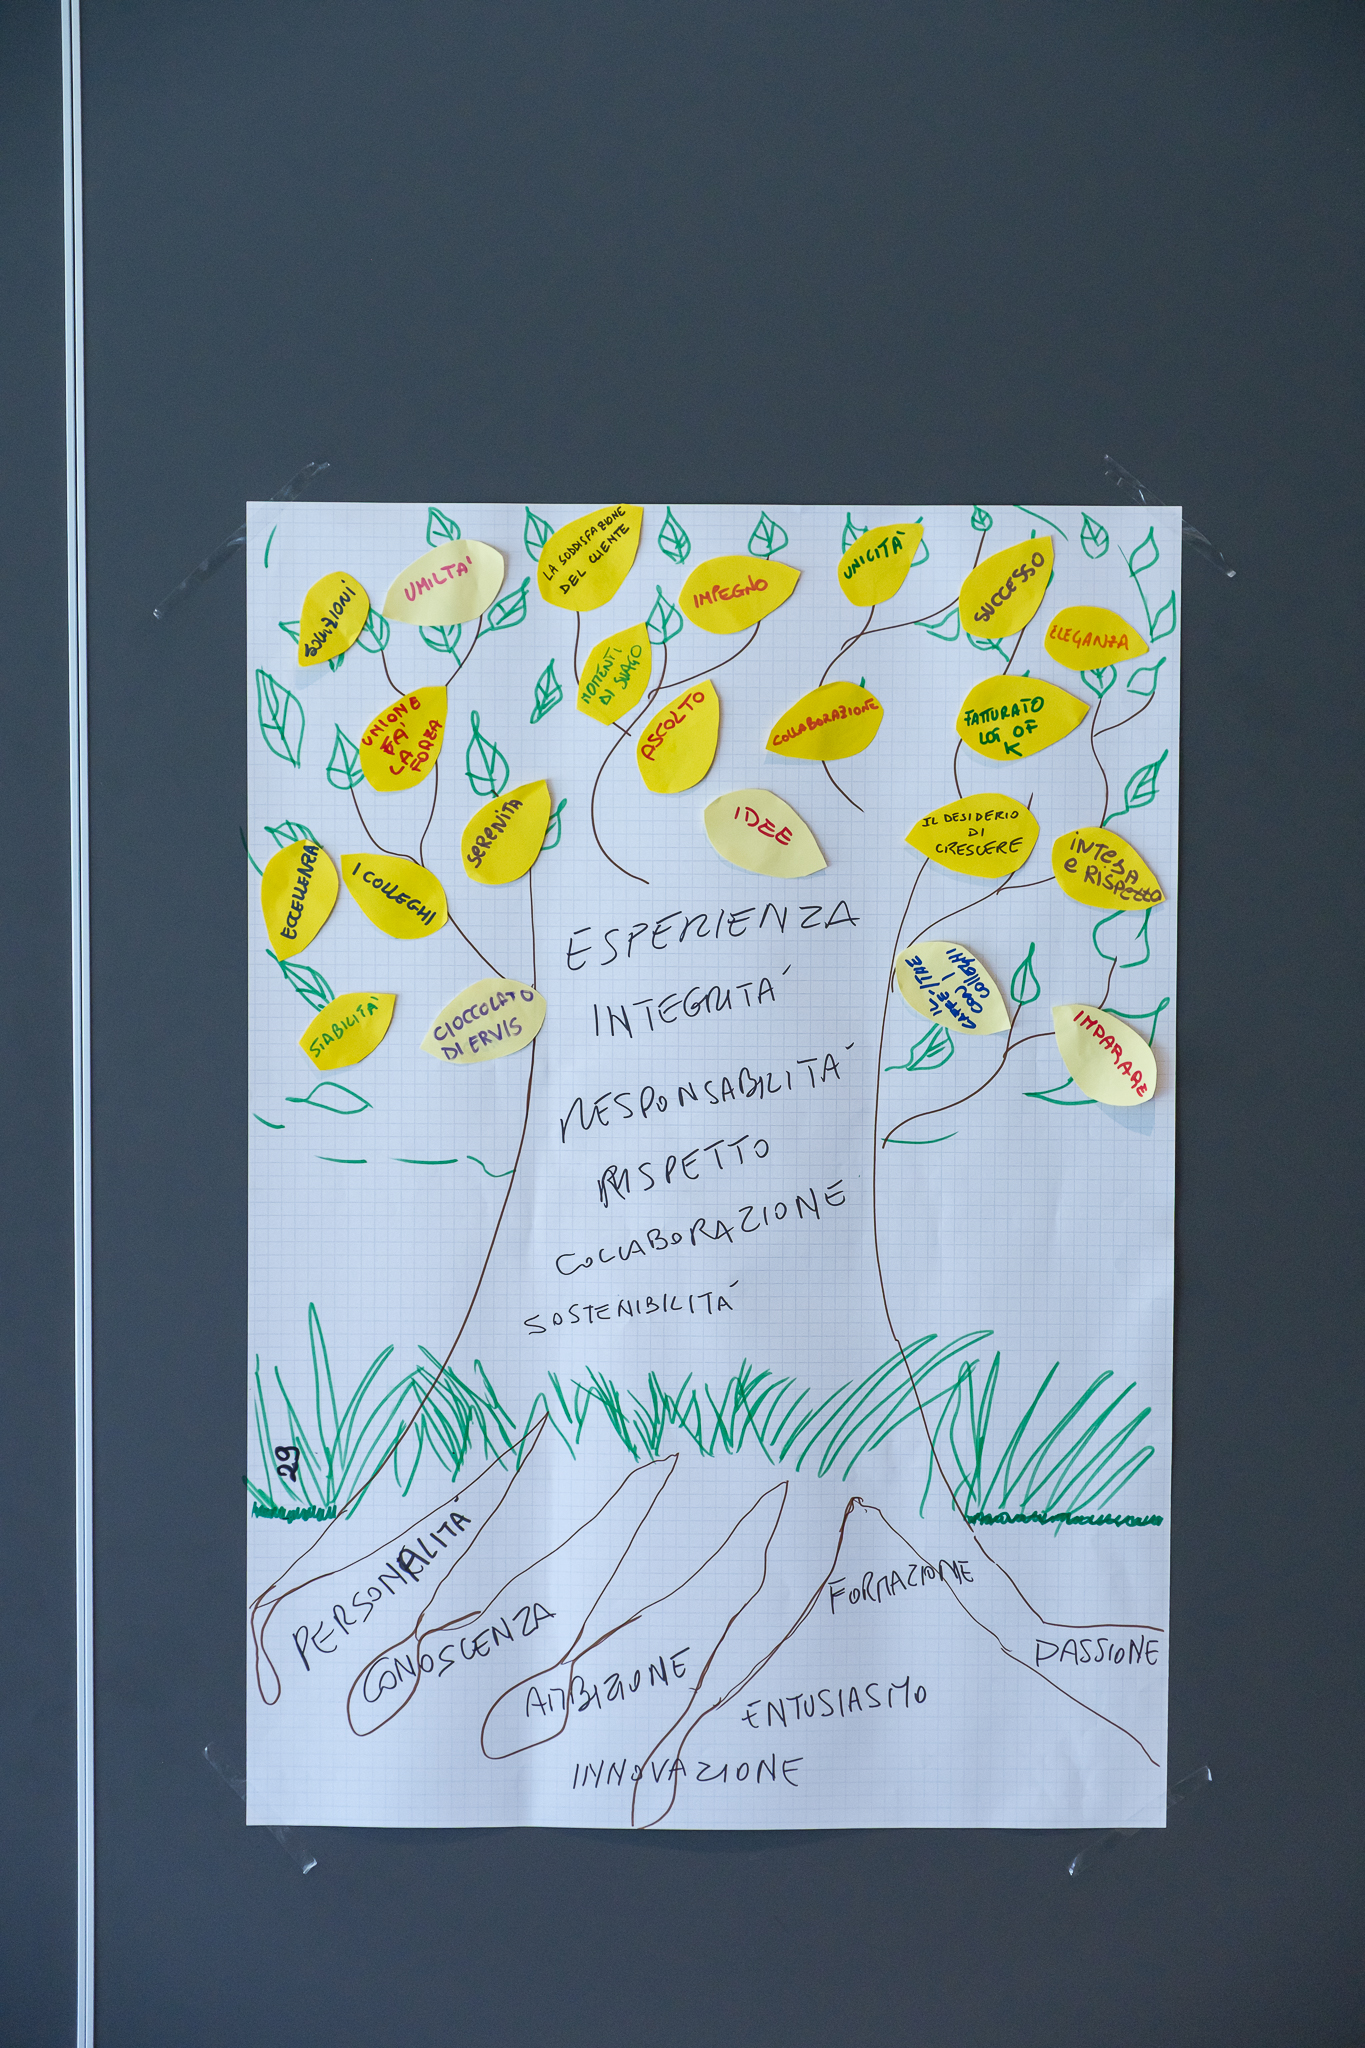 LA SODDISFAZIONE
DEL CLIENTE
UMILTA'
SOLUZIONI
IMPEGNO
UNICITA'
SUCCESSO
ELEGANZA
MOMENTI
DI SVAGO
UNIONE
FA'
LA
FORZA
ASCOLTO
COLLABORAZIONE
FATTURATO
LOI OF
K
SERENITA
IDEE
IL DESIDERIO
DI
CRESCERE
INTESA
e RISPETTO
ECCELLENZA
I COLLEGHI
IL CAFFE'/THE
CON I
COLLEGHI
SIABILITA'
CIOCCOLATO
DI ERVIS
IMPARARE
ESPERIENZA
INTEGRITÀ
RESPONSABILITÀ
RISPETTO
COLLABORAZIONE
SOSTENIBILITÀ
29
PERSONALITÀ
CONOSCENZA
AMBIZIONE
INNOVAZIONE
ENTUSIASMO
FORMAZIONE
PASSIONE